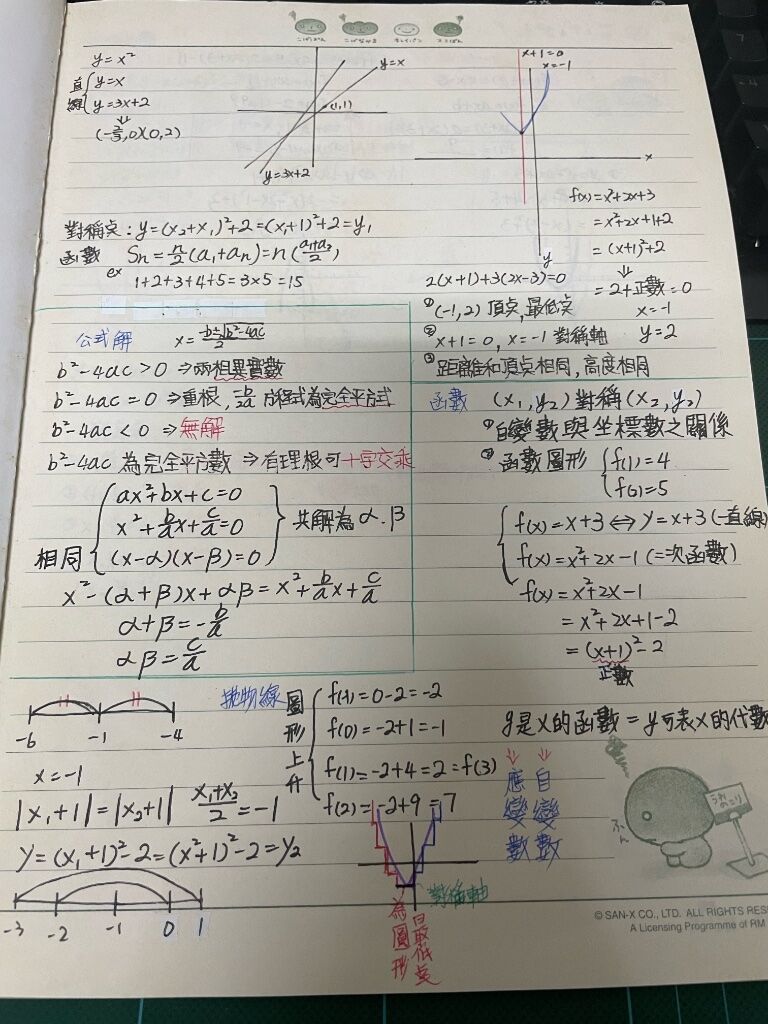 y=x²
直線 { y=x
y=3x+2
⇓
(-2/3,0)(0,2)
y=x
(1,1)
y=3x+2
x+1=0
x=-1
x
y
f(x)=x²+2x+3
=x²+2x+1+2
=(x+1)²+2
⇓
=2+正數=0
x=-1
y=2
對稱点:y=(x₂+x₁)²+2=(x₁+1)²+2=y₁
函數 Sn=n/2(a₁+an)=n(
ex
1+2+3+4+5=3×5=15
2(x+1)+3(2x-3)=0
① (-1,2) 頂点,最低点
② x+1=0, x=-1 對稱軸
③ 距離和頂点相同,高度相同
公式解 x=(-b±√b²-4ac)/2
b²-4ac>0 ⇒兩相異實數
b²-4ac=0 ⇒重根, -b/2a 方程式為完全平方式
b²-4ac<0 ⇒無解
b²-4ac 為完全平方數 ⇒有理根可十字交乘
相同 { ax²+bx+c=0
x²+b/a x+c/a=0
(x-α)(x-β)=0 } 共解為α.β
x²-(α+β)x+αβ=x²+b/a x+c/a
α+β=-b/a
αβ=c/a
函數 (x₁,y₂)對稱(x₂,y₂)
① 自變數與坐標數之關係
② 函數圖形 { f(1)=4
=5
{ f(x)=x+3⇔y=x+3(一直線)
f(x)=x²+2x-1(二次函數)
f(x)=x²+2x-1
=x²+2x+1-2
=(x+1)²-2
正數
y是x的函數=y可表x的代數
應變數
自變數
-6 -1 -4
x=-1
|x₁+1|=|x₂+1| (x₁+x₂)/2=-1
y=(x₁+1)²-2=(x²+1)²-2=y₂
-3 -2 -1 0 1
拋物線
圖形上升 { f(-1)=0-2=-2
f(0)=-2+1=-1
f(1)=-2+4=2=f(3)
f(2)=-2+9=7
對稱軸
為圖形
最低点
© SAN-X CO., LTD. ALL RIGHTS RES
A Licensing Programme of RM